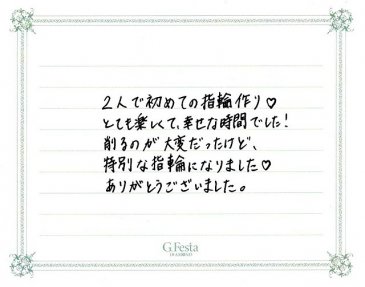 2人で初めての指輪作り♡
とても楽しくて、幸せな時間でした!
削るのが大変だったけど、
特別な指輪になりました♡
ありがとうございました。
G.Festa